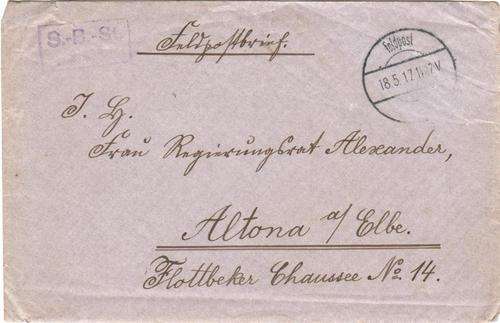 S.-B.
Feldpostbrief.
Feldpost
18.5.17.
J. H.
Frau Regierungsrat Alexander,
Altona a/ Elbe.
Flottbeker Chaussee No. 14.